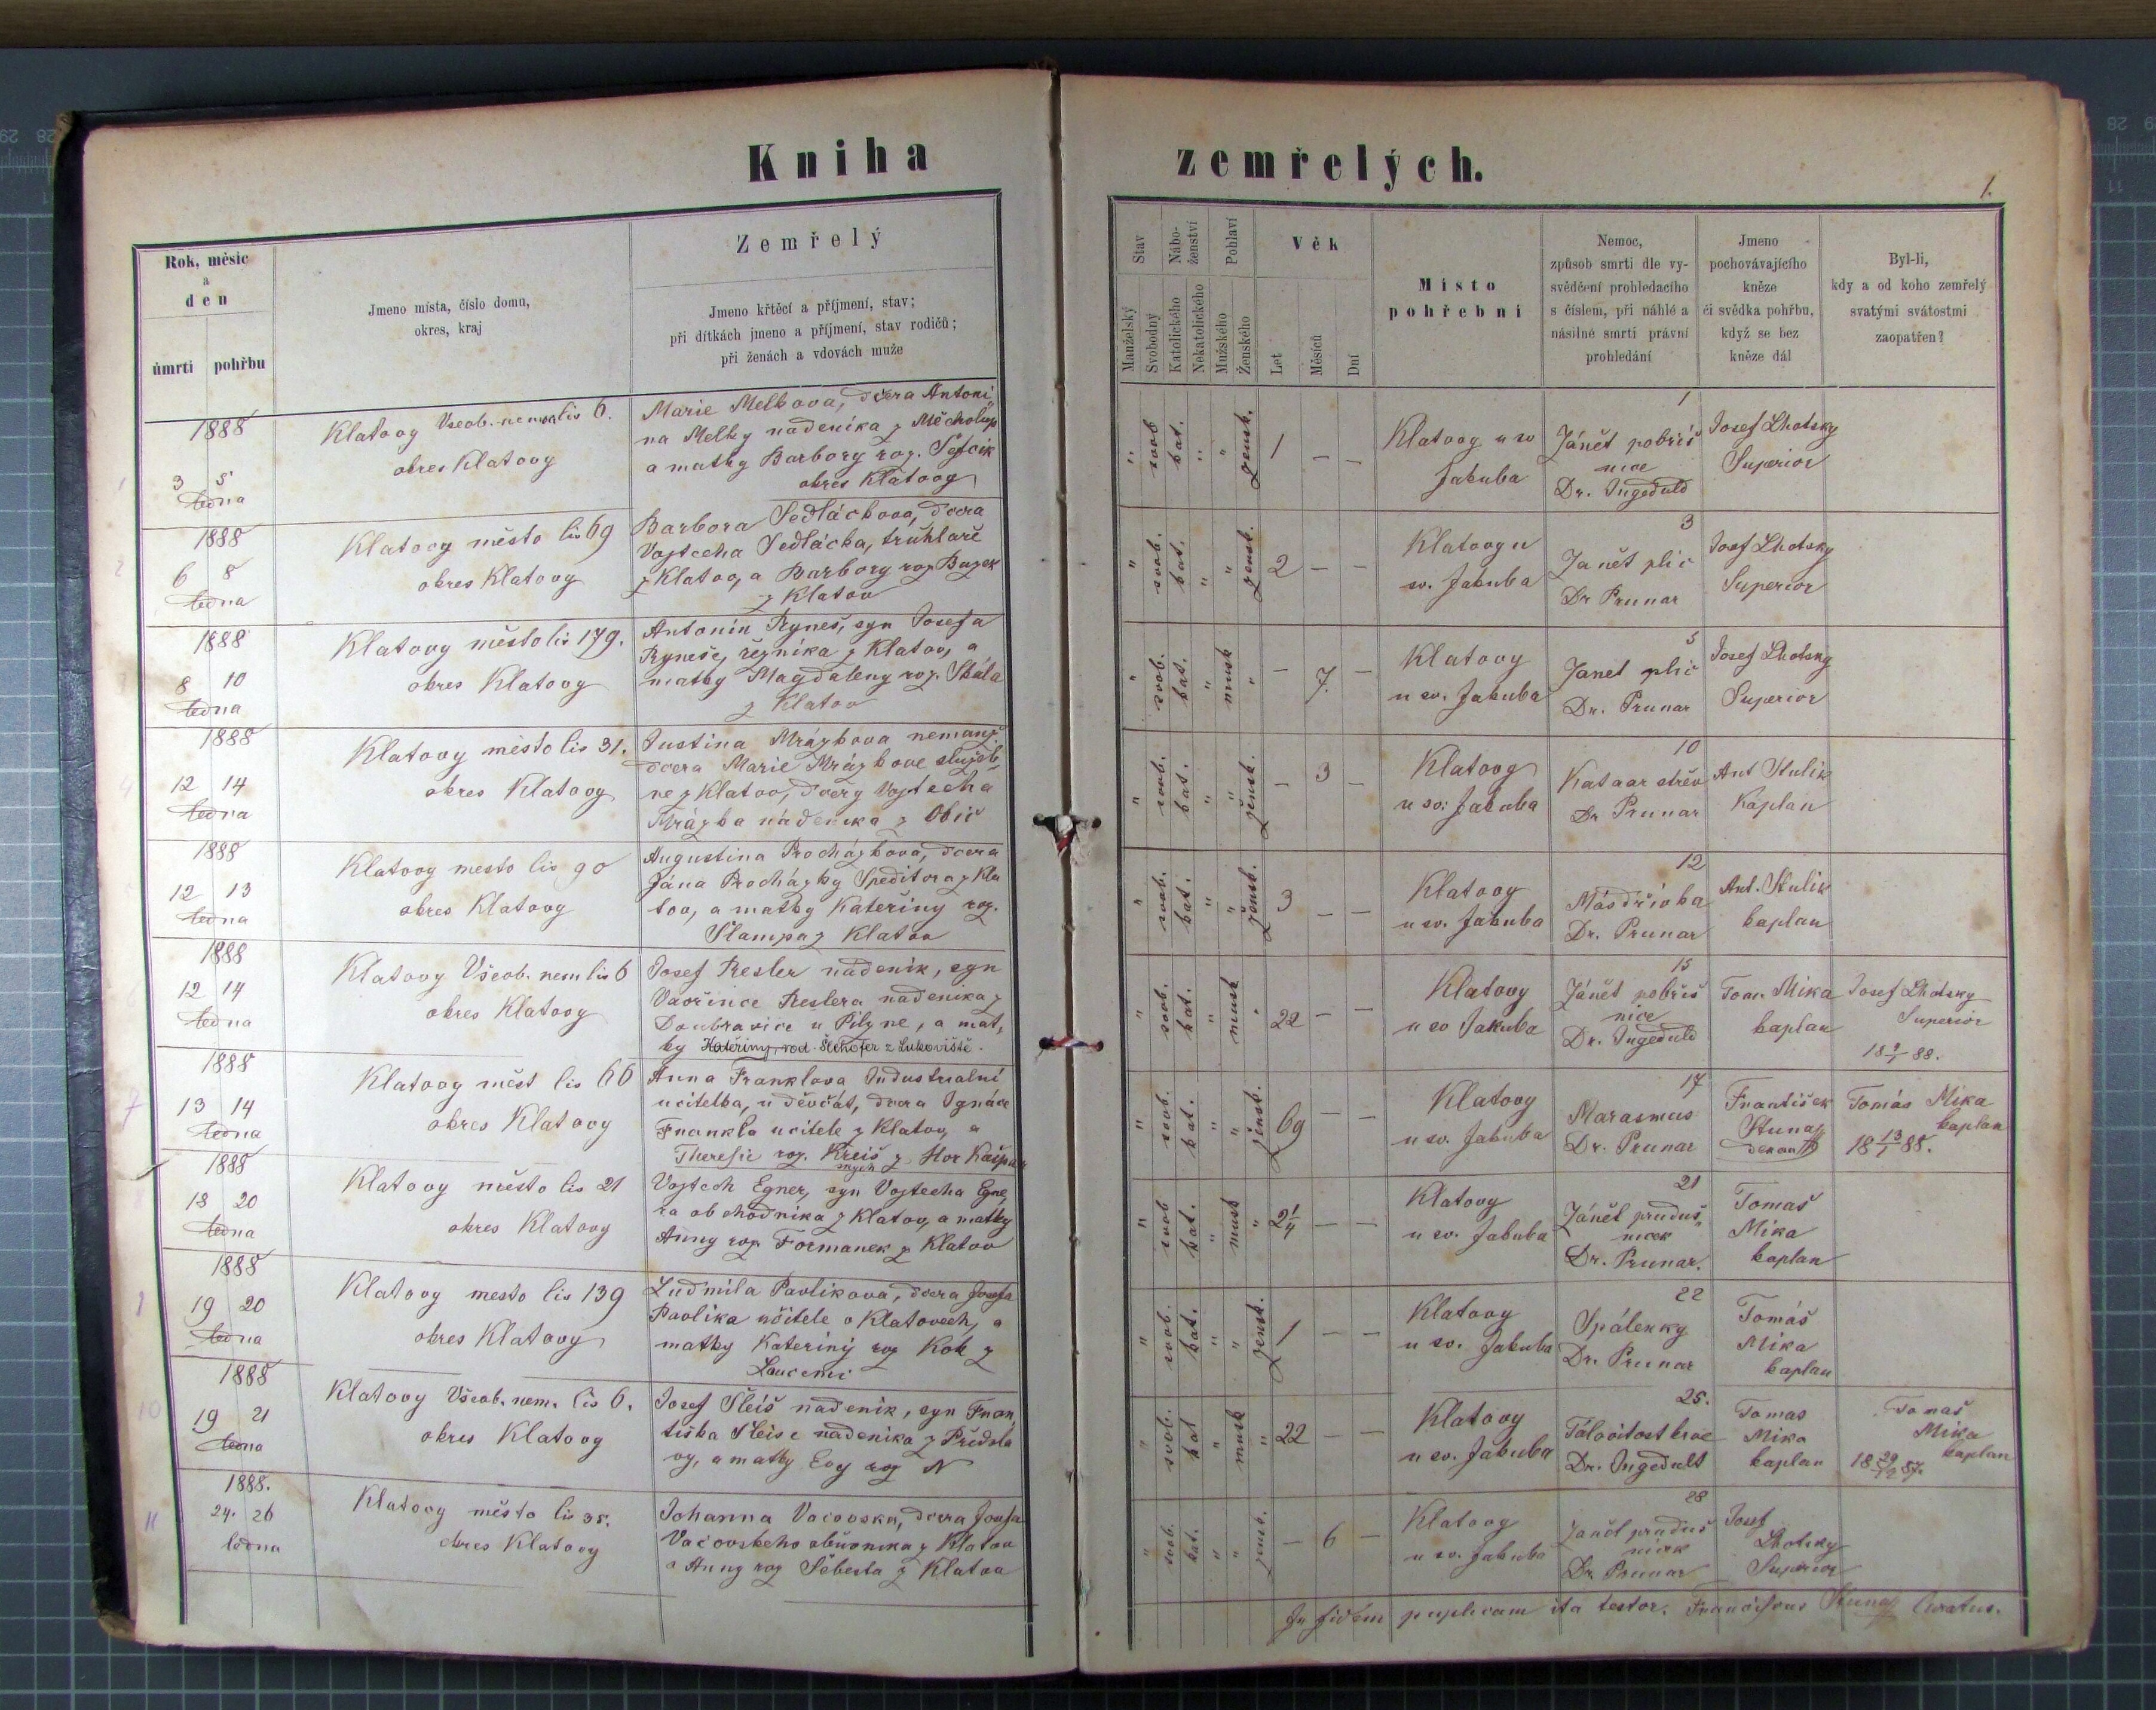 Kniha zemřelých.
1.
Rok, měsíc
a
den
úmrtí pohřbu
Jmeno místa, číslo domu,
okres, kraj
Zemřelý
Jmeno křtěcí a příjmení, stav;
při dítkách jmeno a příjmení, stav rodičů;
při ženách a vdovách muže
Stav
Manželský
Svobodný
Nábo-
ženství
Katolického
Nekatolického
Pohlaví
Mužského
Ženského
Věk
Let
Měsíců
Dní
Místo
pohřební
Nemoc,
způsob smrti dle vy-
svědčení prohledacího
s číslem, při náhlé a
násilné smrti právní
prohledání
Jmeno
pochovávajícího
kněze
či svědka pohřbu,
když se bez
kněze dál
Byl-li,
kdy a od koho zemřelý
svatými svátostmi
zaopatřen?
1888
3 5
ledna
Klatovy Vseob. nem lis 6.
okres Klatovy
Marie Melkova, dcera Antoni
na Melky nadenika z Měcholup
a matky Barbory roz.
okres Klatovy
" svob kat. " " zensk. 1 — —
Klatovy u sv
Jakuba
1
Zánět pobřiš
nice
Dr. Ingeduld
Josef Lhotsky
Superior
1888
6 8
ledna
Klatovy město lis 69
okres Klatovy
Barbora Sedláckova, dcera
Vojtecha Sedlácka, truhlaře
z Klatov, a Barbory roz Buzek
z Klatov
" svob. kat. " " zensk. 2 — —
Klatovy u
sv. Jakuba
3
Zanět plic
Dr Prunar
Josef Lhotsky
Superior
1888
8 10
ledna
Klatovy město lis 179.
okres Klatovy
Antonín Ryneš, syn Josefa
Ryneše, řezníka z Klatov, a
matky Magdaleny roz. Skála
z Klatov
" svob. kat. " musk " — 7. —
Klatovy
u sv. Jakuba
5
Zanet plic
Dr. Prunar
Josef Lhotsky
Superior
1888
12 14
ledna
Klatovy město lis 31.
okres Klatovy
Justina Mrázkova nemanz.
dcera Marie Mrázkove služeb
ne z Klatov, dcery Vojtecha
Mrázka nádenika z
" svob. kat. " " žensk. — 3 —
Klatovy
u sv: Jakuba
10
Kataar střev
Dr Prunar
Ant Stulik
Kaplan
1888
12 13
ledna
Klatovy mesto lis 90
okres Klatovy
Augustina Procházkova, dcera
Jána Procházky Speditora z Kla
tov, a matky Kateřiny roz.
Slampa z Klatov
" svob. kat. " " žensk. 3 — —
Klatovy
u sv. Jakuba
12
Dr. Prunar
Ant. Stulik
kaplan
1888
12 14
ledna
Klatovy Všeob. nem lis 6
okres Klatovy
Josef Resler nadenik, syn
Vavřince Reslera nadenika z
Doubravice u Pilzne, a mat,
ky Kateřiny, rod. z Lukoviště.
" svob. kat. " musk " 22 — —
Klatovy
u sv Jakuba
15
Zánět pobřiš
nice
Dr. Ingeduld
Tom. Mika
kaplan
Josef Lhotsky
Superior
18 9/1 88.
1888
13 14
ledna
Klatovy měst lis 66
okres Klatovy
Anna Franklova Industrialní
ucitelka, u děvčát, dcera Ignáce
Frankla ucitele z Klatov, a
Theresie roz. Kreiš z Hor Kašpar
" svob. kat. " " ženst. 69 — —
Klatovy
u sv. Jakuba
17
Marasmus
Dr. Prunar
František
děkan
Tomás Mika
kaplan
18 13/1 88.
1888
18 20
ledna
Klatovy město lis 21
okres Klatovy
Vojtech Egner, syn Vojtecha Egne
ra obchodníka z Klatov, a matky
Anny roz. Formanek z Klatov
" svob kat. " musk " 2 1/4 — —
Klatovy
u sv. Jakuba
21
Zánět pruduš
nicek
Dr. Prunar.
Tomaš
Mika
kaplan
1888
19 20
ledna
Klatovy mesto lis 139
okres Klatovy
Ludmila Pavlikova, dcera Josefa
Pavlika učitele v Klatovech, a
matky Kateriny roz Kok z
" svob. kat. " " zensk. 1 — —
Klatovy
u sv. Jakuba
22
Spálenky
Dr. Prunar
Tomáš
Mika
kaplan
1888
19 21
ledna
Klatovy Všeob. nem. lis 6.
okres Klatovy
Josef Šleis nadenik, syn Fran
tiška Šleise nadenika z Předsla
vy, a matky Evy roz N
" svob. kat " musk " 22 — —
Klatovy
u sv. Jakuba
25.
Dr. Ingedult
Tomas
Mika
kaplan
Tomaš
Mika
kaplan
18 29/12 87.
1888.
24. 26
ledna
Klatovy město lis 38.
okres Klatovy
Johanna Vacovska, dcera Josefa
Vacovskeho z Klatov
a Anny roz Šebesta z Klatov
" svob. kat. " " zensk. — 6 —
Klatovy
u sv. Jakuba
28
Zanět pruduš
nicek
Dr. Prunar
Josef
Lhotsky
Superior
In fidem ita testor. Franciscus Curatus.